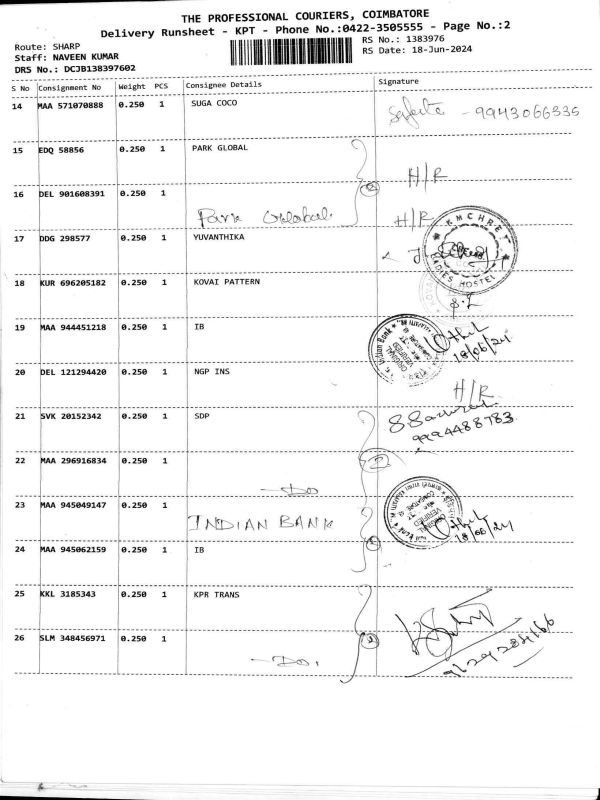 THE PROFESSIONAL COURIERS, COIMBATORE
Delivery Runsheet - KPT - Phone No.:0422-3505555 - Page No.:2
Route: SHARP
RS No.: 1383976
Staff: NAVEEN KUMAR
RS Date: 18-Jun-2024
DRS No.: DCJB138397602
S No Consignment No Weight PCS Consignee Details Signature
14 MAA 571070888 0.250 1 SUGA COCO
- 9943066335
15 EDQ 58856 0.250 1 PARK GLOBAL
H/R
16 DEL 901608391 0.250 1
Park Global H/R
17 DDG 298577 0.250 1 YUVANTHIKA
KMCHRET
LADIES HOSTEL
18 KUR 696205182 0.250 1 KOVAI PATTERN
19 MAA 944451218 0.250 1 IB
Indian Bank
ORIGINAL
VERIFIED
18/06/24
20 DEL 121294420 0.250 1 NGP INS
H/R
21 SVK 20152342 0.250 1 SDP
9994488783
22 MAA 296916834 0.250 1
- Do
23 MAA 945049147 0.250 1
INDIAN BANK
ORIGINAL
VERIFIED
18/06/24
24 MAA 945062159 0.250 1 IB
25 KKL 3185343 0.250 1 KPR TRANS
26 SLM 348456971 0.250 1
- Do.